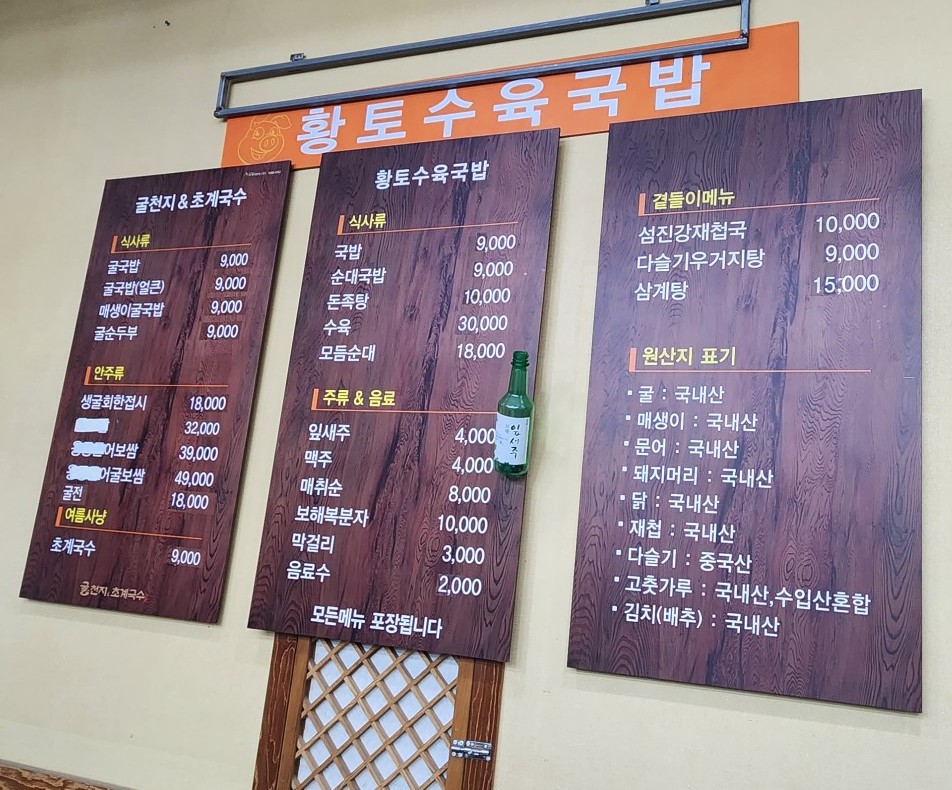 황토수육국밥
굴천지&초계국수
식사류
굴국밥 9,000
굴국밥(얼큰) 9,000
매생이굴국밥 9,000
굴순두부 9,000
안주류
생굴회한접시 18,000
32,000
어보쌈 39,000
어굴보쌈 49,000
굴전 18,000
여름사냥
초계국수 9,000
굴천지& 초계국수
황토수육국밥
식사류
국밥 9,000
순대국밥 9,000
돈족탕 10,000
수육 30,000
모듬순대 18,000
주류 & 음료
잎새주 4,000
맥주 4,000
매취순 8,000
보해복분자 10,000
막걸리 3,000
음료수 2,000
모든메뉴 포장됩니다
잎새주
곁들이메뉴
섬진강재첩국 10,000
다슬기우거지탕 9,000
삼계탕 15,000
원산지 표기
굴 : 국내산
매생이 : 국내산
문어 : 국내산
돼지머리 : 국내산
닭 : 국내산
재첩 : 국내산
다슬기 : 중국산
고춧가루 : 국내산,수입산혼합
김치(배추) : 국내산